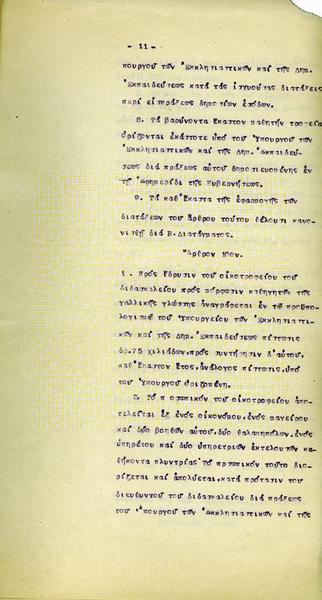 - 11 -
πουργού των Έκκλησιαστικών καί τής Δημ.
Έκπαιδεύσεως κατά τάς ίσχυούσας διατάξεις
περί είσπράξεως δημοσίων έσόδων.
8. Τά βαρύνοντα έκαστον μαθητήν τροφεία
όρίζονται έκάστοτε ύπό του Ύπουργού των
Έκκλησιαστικών καί τής Δημ. Έκπαιδεύ-
σεως διά πράξεως αύτού δημοσιευομένης έν
τή Έφημερίδι τής Κυβερνήσεως.
9. Τά καθ' έκαστα τής έφαρμογής των
διατάξεων του άρθρου τούτου θέλουσι κανο-
νισθή διά Β.Διατάγματος.
Άρθρον 10ον.
1. Πρός ίδρυσιν του οίκοτροφείου του
διδασκαλείου πρός μόρφωσιν καθηγητών τής
γαλλικής γλώσσης άναγράφεται έν τώ προϋπο-
λογισμώ του Ύπουργείου των Έκκλησιαστι-
κών καί τής Δημ. Έκπαιδεύσεως πίστωσις
δρ.75 χιλιάδων,πρός συντήρησιν δ'αύτού,
καθ'έκαστον έτος,άνάλογος πίστωσις,ύπό
του Ύπουργού όριζομένη.
2. Τό προσωπικόν του οίκοτροφείου άπο-
τελείται έξ ένός οίκονόμου,ένός μαγείρου
καί δύο βοηθών αύτού,δύο θαλαμηπόλων,ένός
ύπηρέτου καί δύο ύπηρετριών έκτελουσών κα-
θήκοντα πλυντρίας Τό προσωπικόν τούτο διο-
ρίζεται καί άπολύεται,κατά πρότασιν του
διευθυντού του διδασκαλείου διά πράξεως
του Ύπουργού των Έκκλησιαστικών καί τής